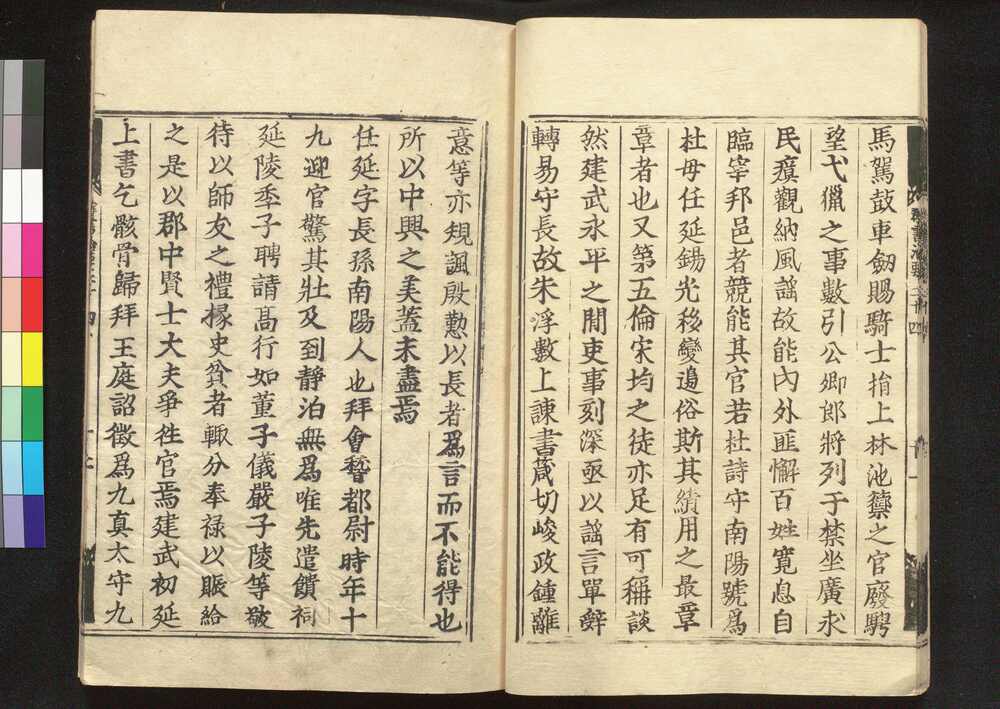 馬駕鼓車劒賜騎士揹上林池籞之官廢騁
望弋獵之事數引公卿郎將列于禁坐廣求
民瘼觀納風謡故能內外匪懈百姓寬息自
臨宰邦邑者競能其官若杜詩守南陽號爲
杜母任延錫光移變邊俗斯其績用之最章
章者也又第五倫宋均之徒亦足有可稱談
然建武永平之間吏事刻深亟以謡言單辤
轉易守長故朱浮數上諫書葴切峻政鍾離
意等亦規諷殷懃以長者爲言而不能得也
所以中興之美蓋未盡焉
任延字長孫南陽人也拜會稽都尉時年十
九迎官驚其壯及到靜泊無爲唯先遣饋祠
延陵季子聘請髙行如董子儀嚴子陵等敬
待以師友之禮掾史貧者輙分奉禄以賑給
之是以郡中賢士大夫爭徃官焉建武初延
上書乞骸骨歸拜王庭詔徵爲九真太守九